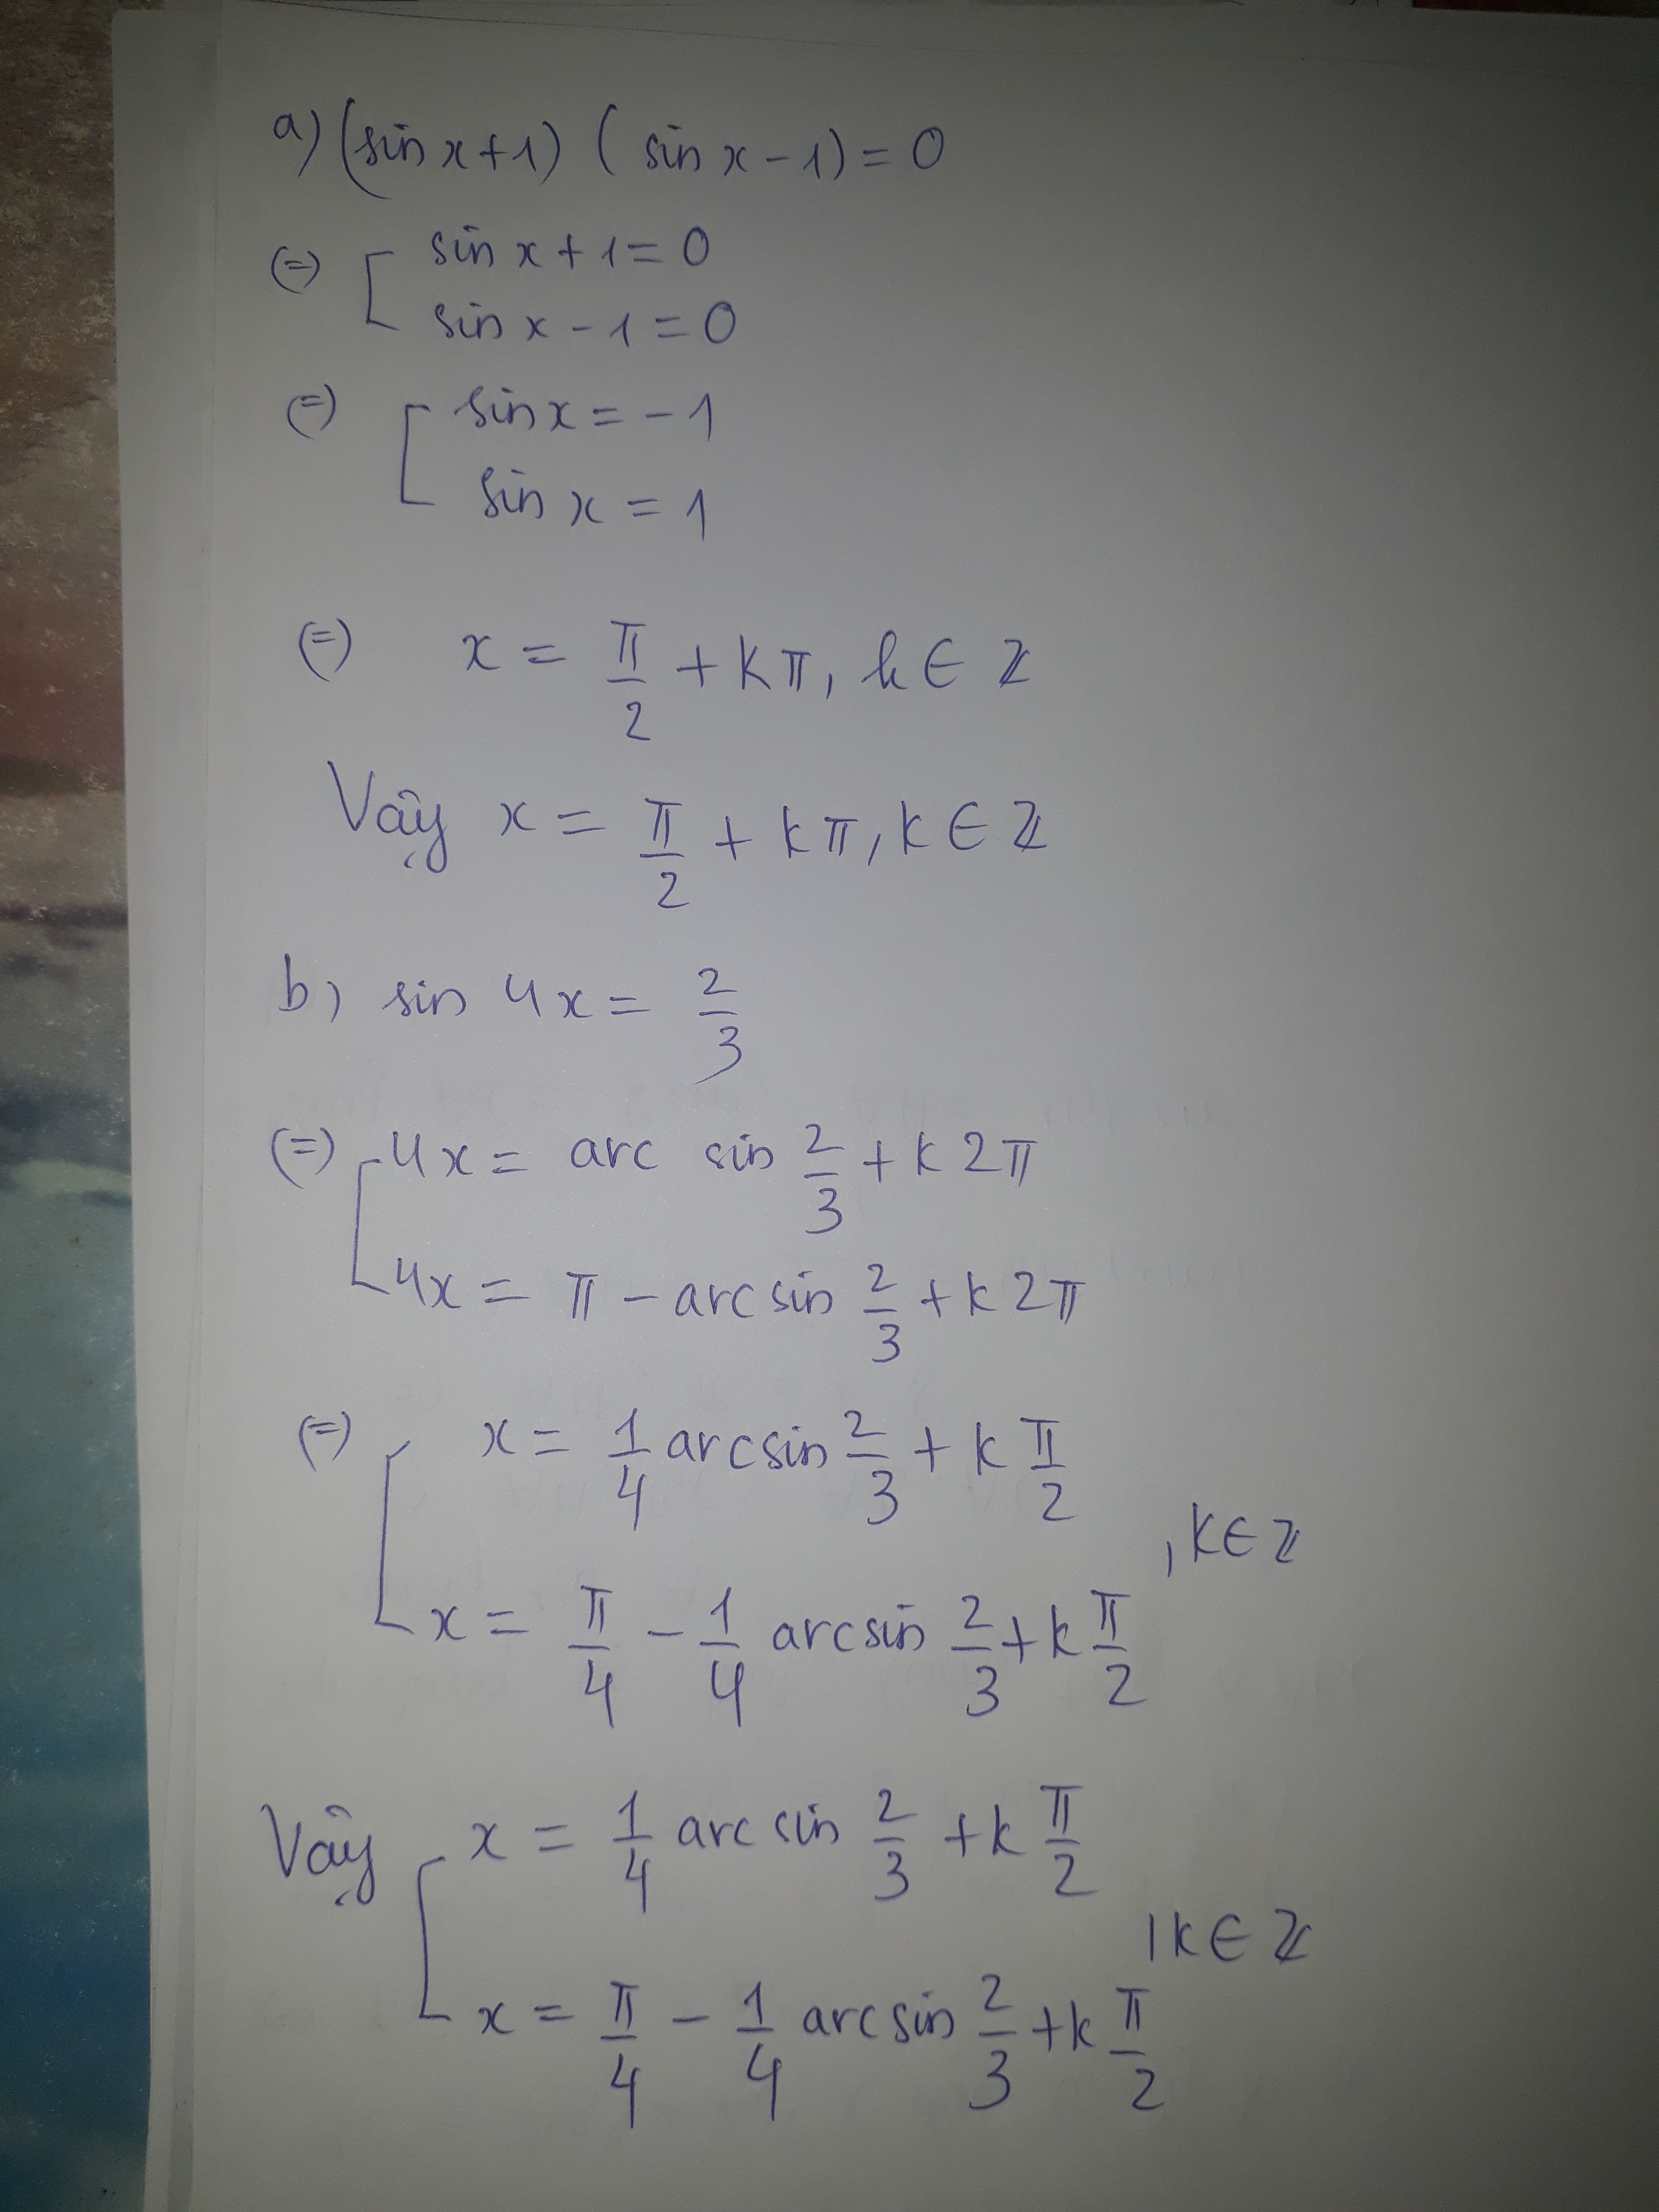 a) (sin x + 1) ( sin x - 1) = 0
(=) [ sin x + 1 = 0
sin x - 1 = 0
(=) [ sin x = - 1
sin x = 1
(=) x = π/2 + kπ, k ∈ Z
Vậy x = π/2 + kπ, k ∈ Z
b) sin 4x = 2/3
(=) [ 4x = arc sin 2/3 + k2π
4x = π - arcsin 2/3 + k2π
(=) [ x = 1/4 arcsin 2/3 + k π/2
, k ∈ Z
x = π/4 - 1/4 arcsin 2/3 + k π/2
Vậy [ x = 1/4 arcsin 2/3 + k π/2
, k ∈ Z
x = π/4 - 1/4 arcsin 2/3 + k π/2